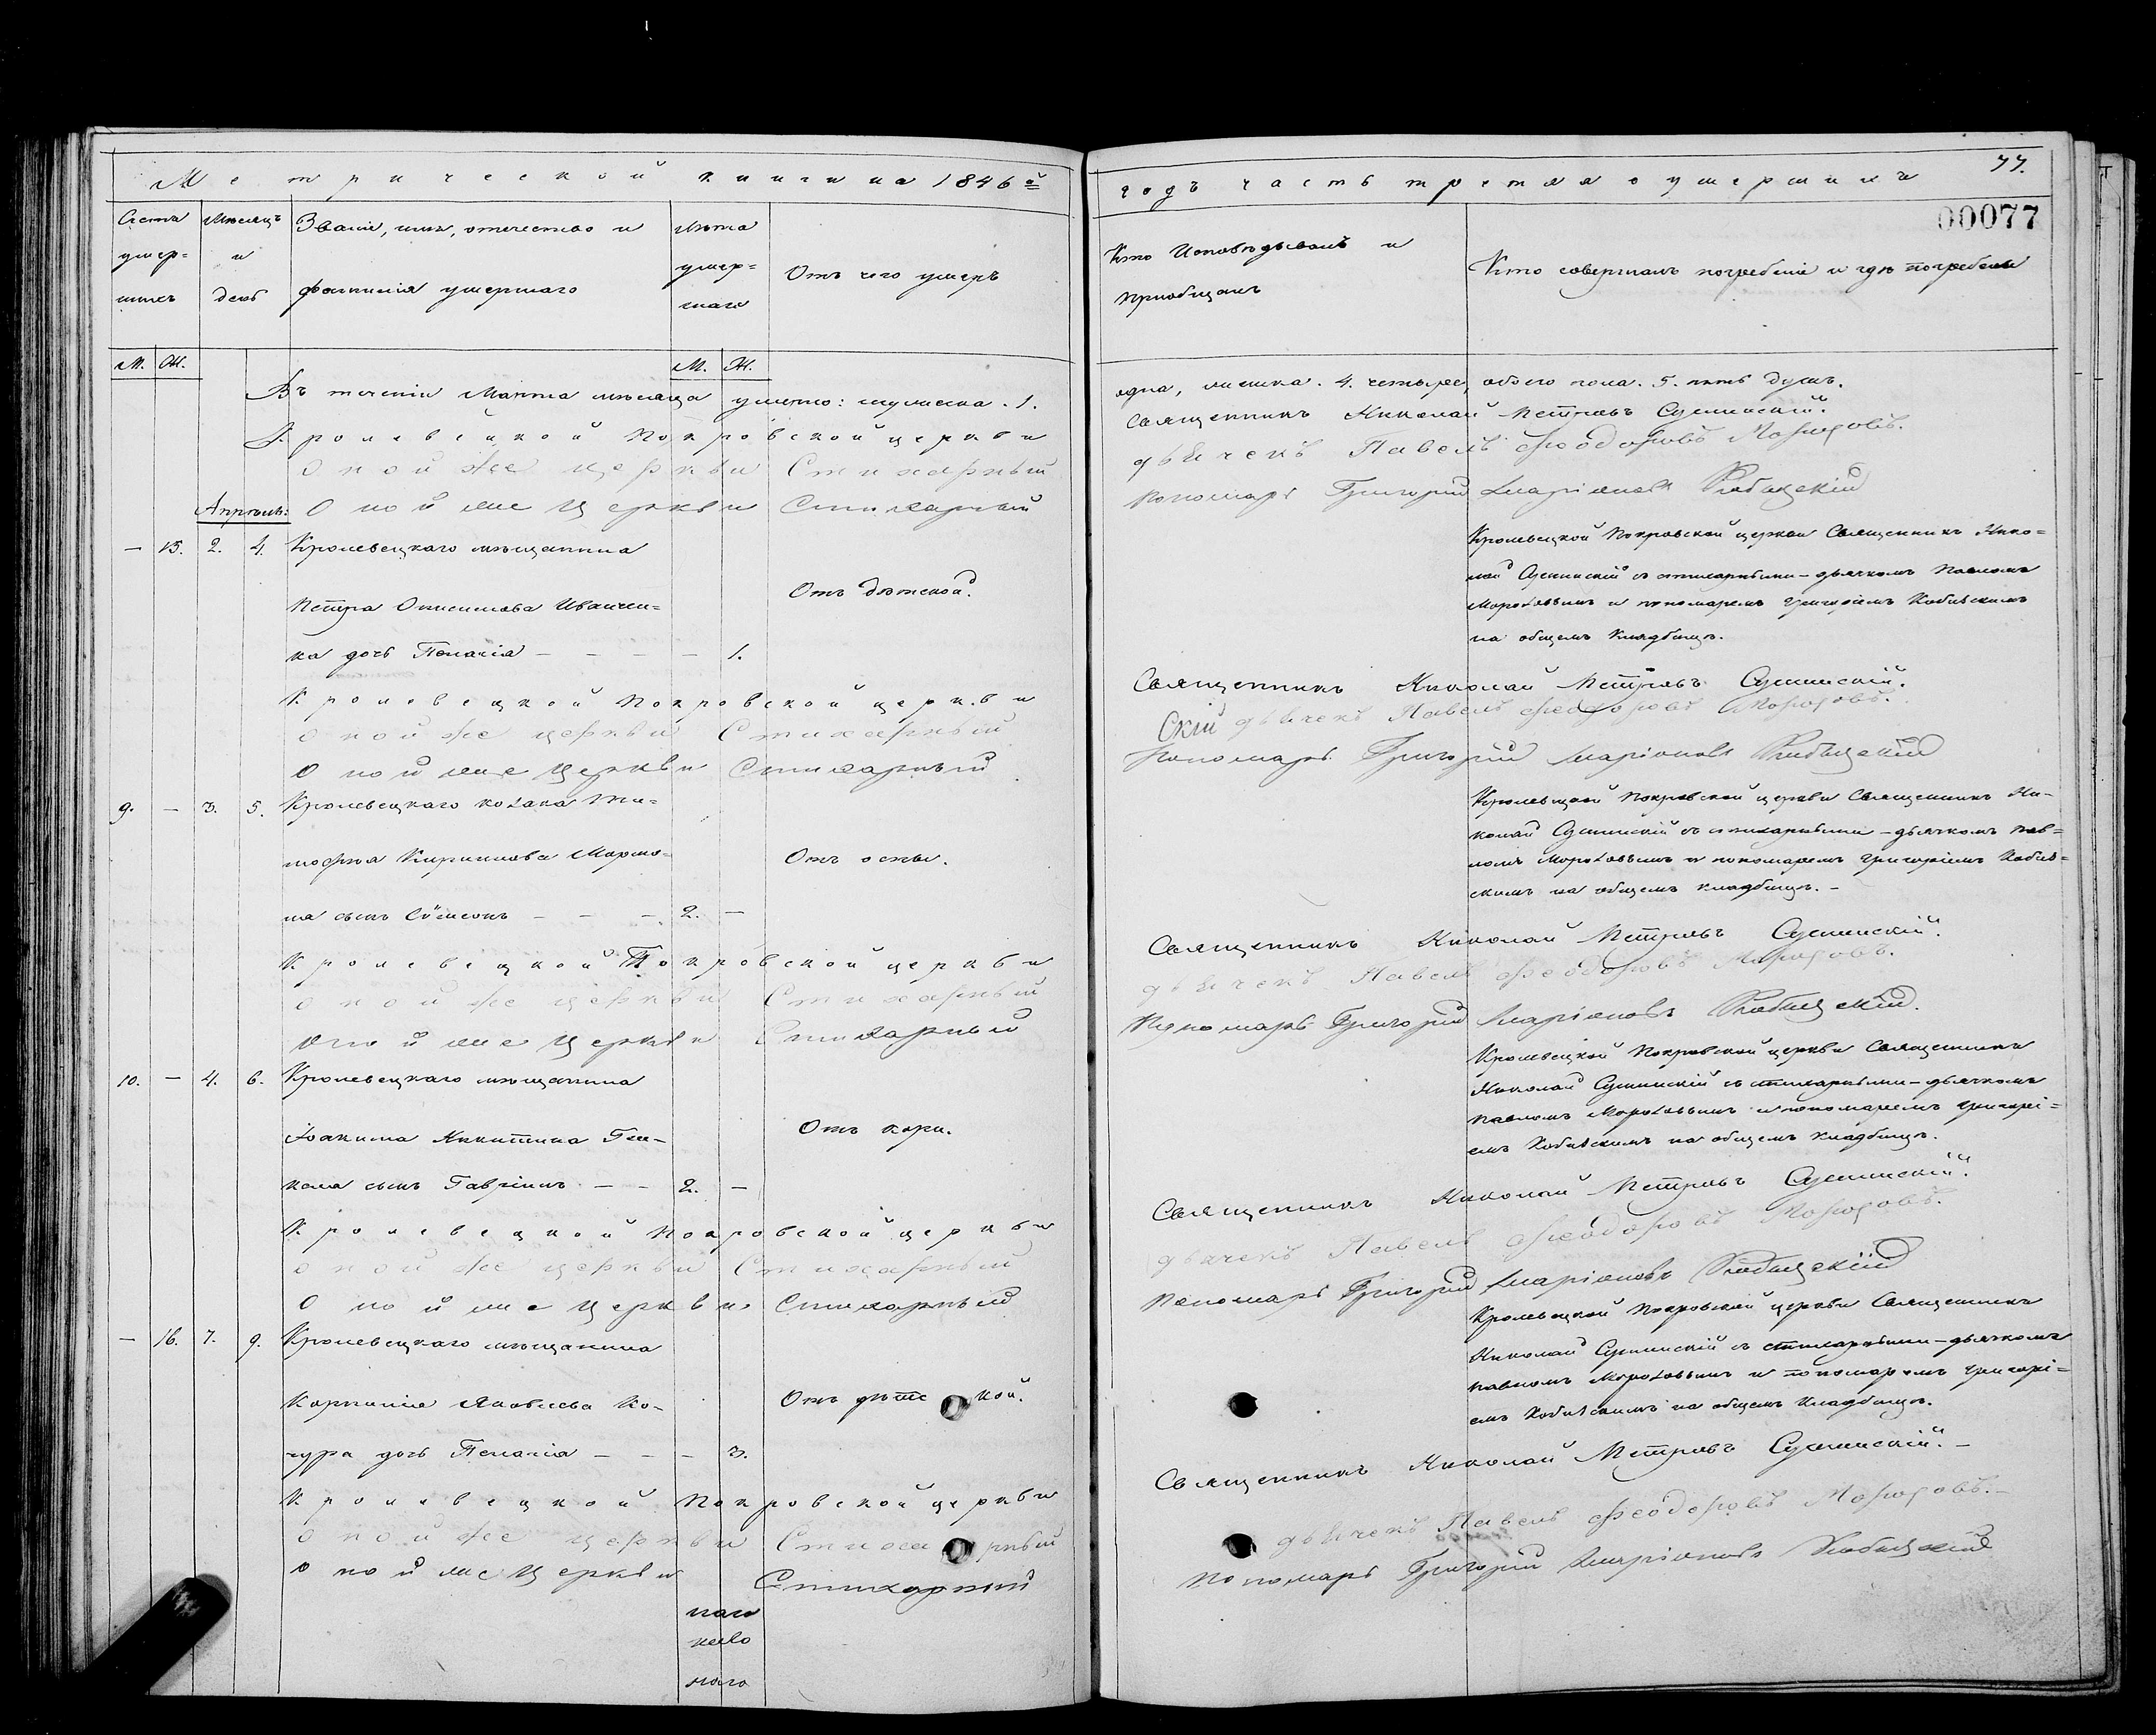 Метрической книги на 1846й
годъ часть третья о умершихъ
77.
00077
Счетъ умер-шихъ
Мѣсяцъ и день
Званіе, имя, отечество и фамилія умершаго
Лѣта умер-шаго
Отъ чего умеръ
Кто Исповѣдывалъ и приобщалъ
Кто совершалъ погребеніе и гдѣ погребены
М. Ж.
М. Ж.
Въ теченіи Марта мѣсяца умерло: мужеска. 1.
одна, женска. 4. четыре, обоего пола. 5. пять душъ.
Кролевецкой Покровской церкви
Священникъ Николай Петровъ Сушинскій.
Оной же церкви Стихарный
дьячекъ Павелъ Феодоровъ Морозовъ.
Оной же Церкви Стихарный
Пономарь Григорій
Апрѣль:
— 15. 2. 4. Кролевецкаго мѣщанина
Петра Онисимова Иванчен-
ка дочь Пелагія — — — — 1.
Отъ дѣтской.
Кролевецкой Покровской церкви Священникъ Нико-
лай Сушинскій съ стихарными – дьячкомъ Павломъ
Морозовымъ и пономаремъ Григоріемъ
на общемъ Кладбищѣ.
Кролевецкой Покровской церкви
Священникъ Николай Петровъ Сушинскій.
Оной же церкви Стихарный
Скій дьячекъ Павелъ Феодоровъ Морозовъ.
Оной же Церкви Стихарный
Пономарь Григорій
9. — 3. 5. Кролевецкаго козака Ти-
мофея Кирилова
сынъ Сѵмеонъ — — — 2. —
Отъ оспы.
Кролевецкой Покровской церкви Священникъ Ни-
колай Сушинскій съ стихарными – дьячкомъ Пав-
ломъ Морозовымъ и пономаремъ Григоріемъ
на общемъ кладбищѣ. –
Кролевецкой Покровской церкви
Священникъ Николай Петровъ Сушинскій.
Оной же церкви Стихарный
дьячекъ Павелъ Феодоровъ Морозовъ.
Оной же Церкви Стихарный
Пономарь Григорій
10. — 4. 6. Кролевецкаго мѣщанина
Іоакима Никитина
сынъ Гавріилъ — — 2. —
Отъ кори.
Кролевецкой Покровской церкви Священникъ
Николай Сушинскій съ стихарными – дьячкомъ
Павломъ Морозовымъ и пономаремъ Григорі-
емъ на общемъ кладбищѣ.
Кролевецкой Покровской церкви
Священникъ Николай Петровъ Сушинскій.
Оной же церкви Стихарный
дьячекъ Павелъ Феодоровъ Морозовъ.
Оной же Церкви Стихарный
Пономарь Григорій
— 16. 7. 9. Кролевецкаго мѣщанина
Корнилія Яковлева Ко-
чура дочь Пелагія — — — 3.
Отъ дѣтской.
Кролевецкой Покровской церкви Священникъ
Николай Сушинскій съ стихарными – дьячкомъ
Павломъ Морозовымъ и пономаремъ Григорі-
емъ на общемъ Кладбищѣ.
Кролевецкой Покровской церкви
Священникъ Николай Петровъ Сушинскій. –
Оной же церкви Стихарный
дьячекъ Павелъ Феодоровъ Морозовъ. –
Оной же Церкви Стихарный
Пономарь Григорій